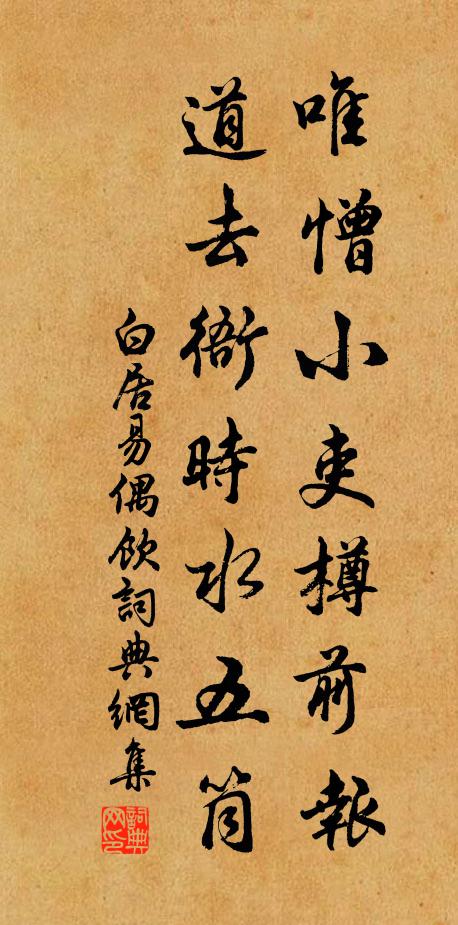 唯憎小吏樽前報
道去衙時水五筒
白居易偶飲詞典網集
詞典网印